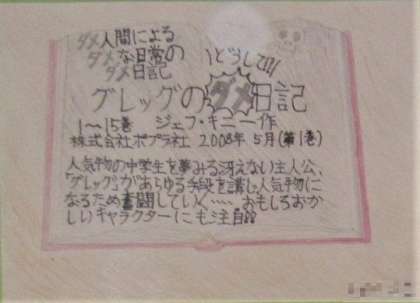 ダメ人間による
ダメな日常の
ダメ日記
どうして!!!
グレッグのダメ日記
1〜15巻 ジェフ・キニー作
株式会社ポプラ社 2008年5月(第1巻)
人気物の中学生を夢みる冴えない主人公、
「グレッグ」があらゆる手段を講じ人気物に
なるため奮闘していく…… おもしろおか
しいキャラクターにも注目!!